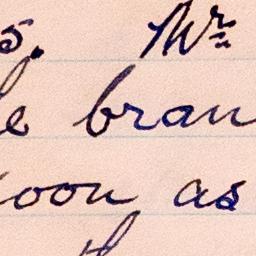 s. Mr
e bran
oon as